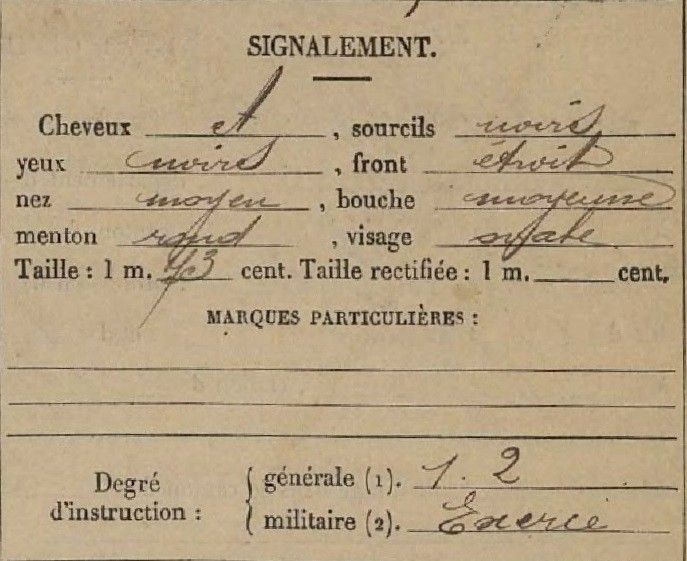 SIGNALEMENT.
Cheveux et, sourcils noirs
yeux noirs, front étroit
nez moyen, bouche moyenne
menton rond, visage ovale
Taille : 1 m. 73 cent. Taille rectifiée : 1 m. cent.
MARQUES PARTICULIÈRES :
Degré d'instruction :
générale (1). 1. 2
militaire (2). Exercé